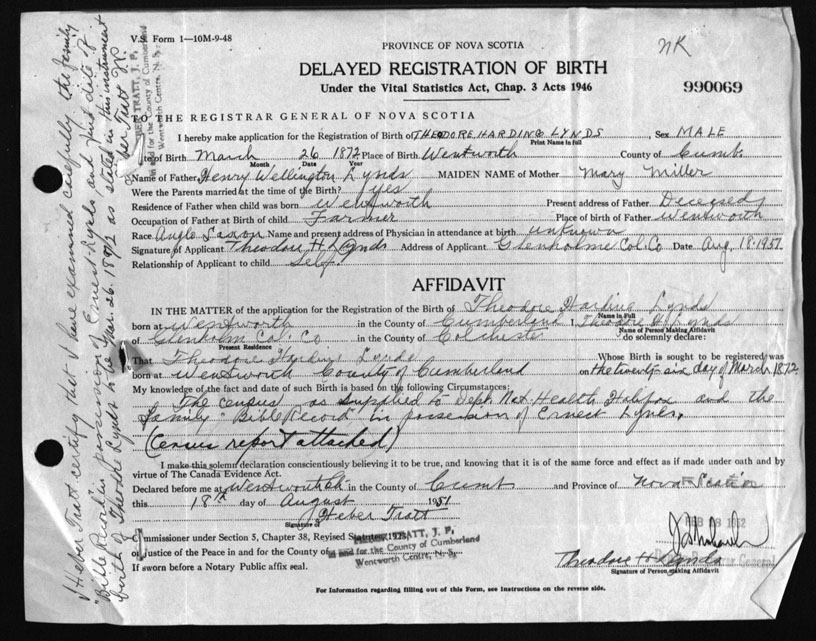 V.S. Form 1—10M-9-48
PROVINCE OF NOVA SCOTIA
NK
DELAYED REGISTRATION OF BIRTH
Under the Vital Statistics Act, Chap. 3 Acts 1946
990069
TO THE REGISTRAR GENERAL OF NOVA SCOTIA
I hereby make application for the Registration of Birth of THEODORE HARDING LYNDS, Sex MALE
Print Name in full
Date of Birth March 26 1872 Place of Birth Wentworth County of Cumb.
Month Date Year
Name of Father Henry Wellington Lynds MAIDEN NAME of Mother Mary Miller
Were the Parents married at the time of the Birth? yes
Residence of Father when child was born Wentworth Present address of Father Deceased
Occupation of Father at Birth of child Farmer Place of birth of Father Wentworth
Race Anglo Saxon Name and present address of Physician in attendance at birth unknown
Signature of Applicant Theodore H Lynds Address of Applicant Glenholme Col. Co Date Aug. 18. 1951
Relationship of Applicant to child Self.
AFFIDAVIT
IN THE MATTER of the application for the Registration of the Birth of Theodore Harding Lynds
Name in Full
born at Wentworth in the County of Cumberland I, Theodore H Lynds
Name of Person Making Affidavit
of Glenholm Col. Co in the County of Colchester do solemnly declare:
Present Residence
That Theodore Harding Lynds Whose Birth is sought to be registered was
born at Wentworth County of Cumberland on the twenty six day of March 1872
My knowledge of the fact and date of such Birth is based on the following Circumstances:
The census as supplied to Dept. Nat. Health Halifax and the
family Bible Record in possession of Ernest Lynds.
(Census report attached)
I make this solemn declaration conscientiously believing it to be true, and knowing that it is of the same force and effect as if made under oath and by
virtue of The Canada Evidence Act.
Declared before me at Wentworth in the County of Cumb and Province of Nova Scotia
this 18th day of August 1951
Heber Tratt
Signature of
Commissioner under Section 5, Chapter 38, Revised Statutes, 1923,
or Justice of the Peace in and for the County of
TRATT, J. P.
in and for the County of Cumberland
Wentworth Centre, N. S.
If sworn before a Notary Public affix seal.
Theodore H Lynds
Signature of Person making Affidavit
General
For Information regarding filling out of this Form, see instructions on the reverse side.
I Heber Tratt certify that I have examined carefully the family
"Bible Record" in possession of Ernest Lynds and find date of
birth of Theodore Lynds to be Mar. 26. 1872 as stated in this instrument
Heber Tratt J.P.
HEBER TRATT, J. P.
in and for the County of Cumberland
Wentworth Centre, N. S.